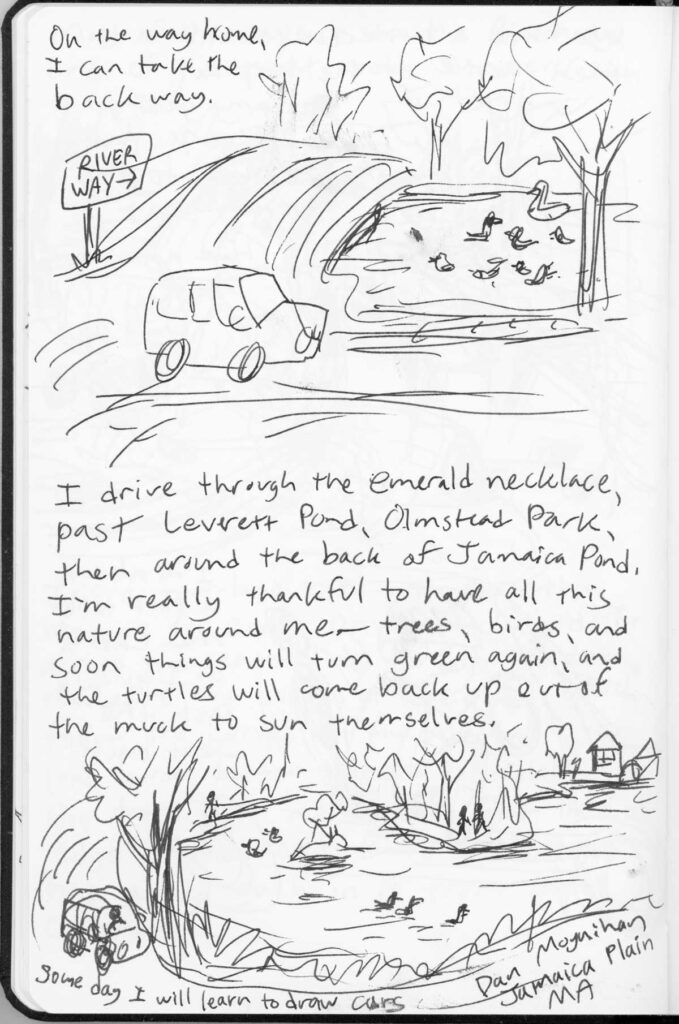 On the way home,
I can take the
back way.
RIVER
WAY→
I drive through the emerald necklace,
past Leverett Pond, Olmstead Park,
then around the back of Jamaica Pond.
I'm really thankful to have all this
nature around me— trees, birds, and
soon things will turn green again, and
the turtles will come back up out of
the muck to sun themselves.
Some day I will learn to draw cars
Dan Moynihan
Jamaica Plain
MA